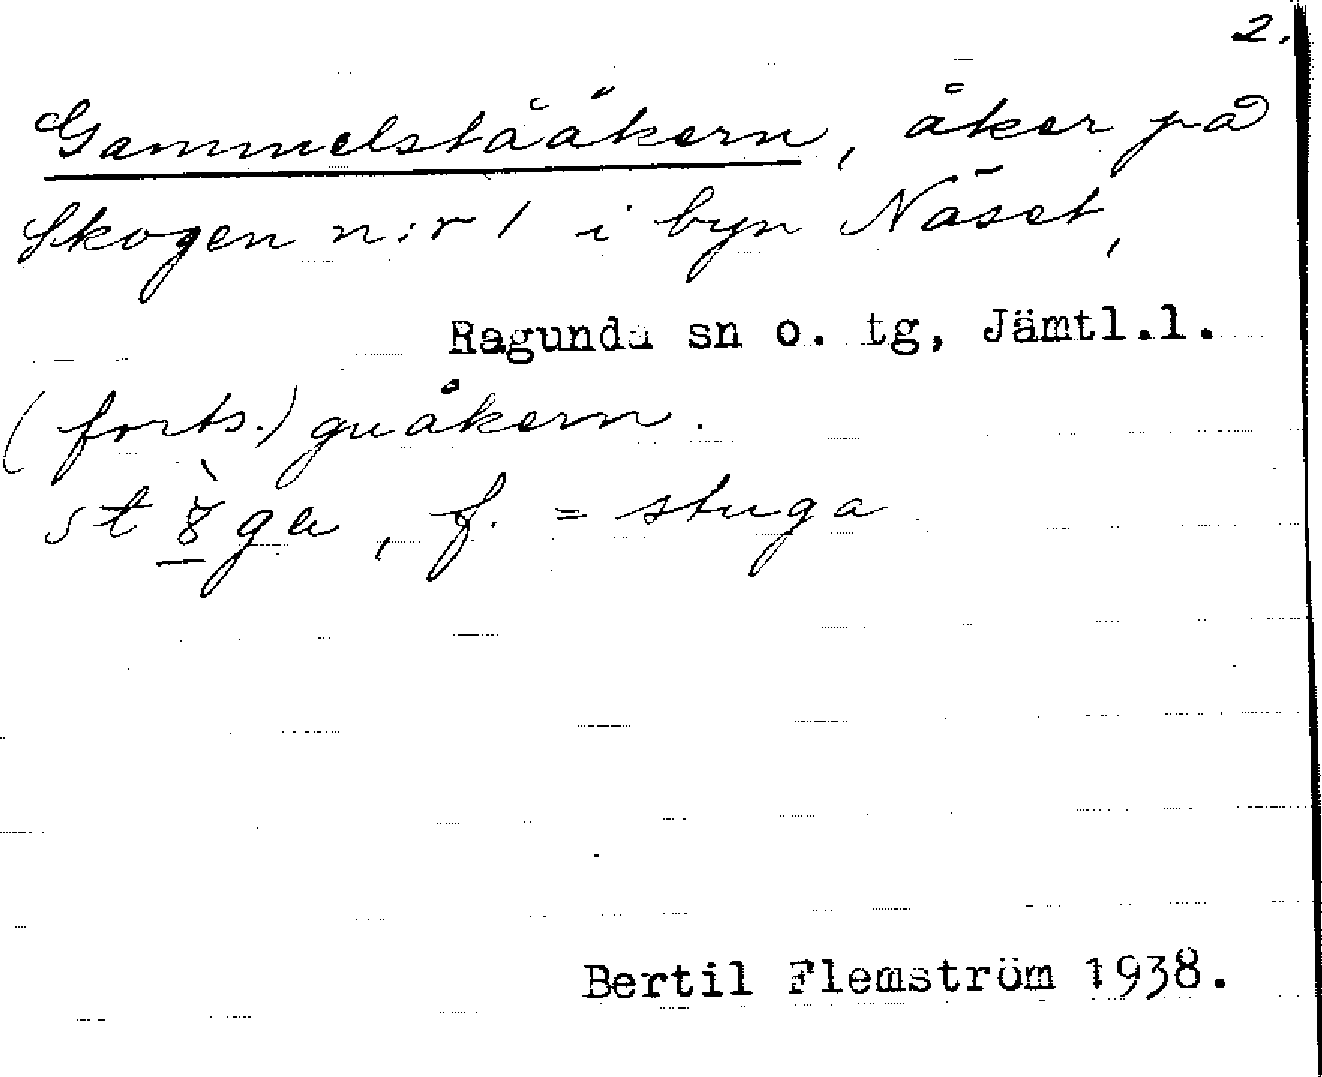 2.
Gammelstååkern, åker på
Skogen n:r 1 i byn Näset,
Ragunda sn o. tg, Jämtl.l.
(forts.) guåkern.
f. = stuga
Bertil Flemström 1938.